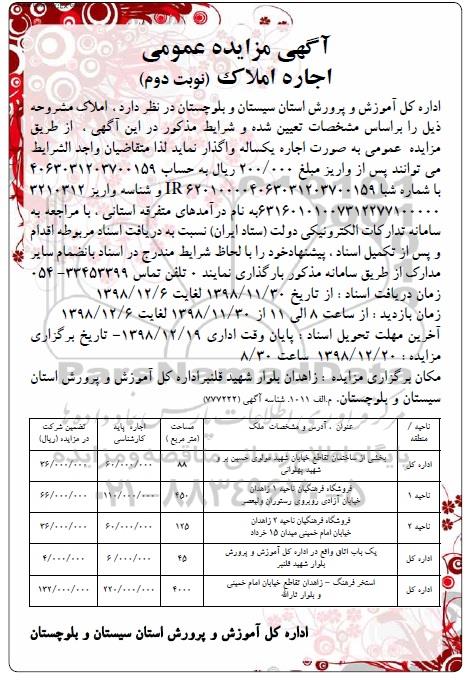 آگهی مزایده عمومی
اجاره املاک (نوبت دوم)
اداره کل آموزش و پرورش استان سیستان و بلوچستان در نظر دارد ، املاک مشروحه
ذیل را براساس مشخصات تعیین شده و شرایط مذکور در این آگهی ، از طریق
مزایده عمومی به صورت اجاره یکساله واگذار نماید لذا متقاضیان واجد الشرایط
می توانند پس از واریز مبلغ ۲۰۰/۰۰۰ ریال به حساب ۴۰۶۳۰۳۱۲۰۳۷۰۰۱۵۹
با شماره شبا IR ۶۲۰۱۰۰۰۰۴۰۶۳۰۳۱۲۰۳۷۰۰۱۵۹ و شناسه واریز ۳۲۱۰۳۱۲
۶۳۱۶۰۱۰۱۰۰۷۳۱۲۲۷۷۱۰۰۰۰۰به نام درآمدهای متفرقه استانی ، با مراجعه به
سامانه تدارکات الکترونیکی دولت (ستاد ایران) نسبت به دریافت اسناد مربوطه اقدام
و پس از تکمیل اسناد ، پیشنهادخود را با لحاظ شرایط مندرج در اسناد بانضمام سایر
مدارک از طریق سامانه مذکور بارگذاری نمایند ۰ تلفن تماس ۳۳۴۵۳۳۹۹- ۰۵۴
زمان دریافت اسناد : از تاریخ ۱۳۹۸/۱۱/۳۰ لغایت ۱۳۹۸/۱۲/۶
زمان بازدید : از ساعت ۸ الی ۱۱ از ۱۳۹۸/۱۱/۳۰ لغایت ۱۳۹۸/۱۲/۶
آخرین مهلت تحویل اسناد : پایان وقت اداری ۱۳۹۸/۱۲/۱۹- تاریخ برگزاری
مزایده : ۱۳۹۸/۱۲/۲۰ ساعت ۸/۳۰
مکان برگزاری مزایده : زاهدان بلوار شهید قلنبراداره کل آموزش و پرورش استان
سیستان و بلوچستان. م.الف ۱۰۱۱. شناسه آگهی (۷۷۷۲۲۲)
ناحیه / منطقه | عنوان ، آدرس و مشخصات ملک | مساحت (متر مربع ) | اجاره پایه کارشناسی | تضمین شرکت در مزایده (ریال)
اداره کل | بخشی از ساختمان تقاطع خیابان شهید مولوی حسین بر و شهید پهلوانی | ۸۸ | ۶۰/۰۰۰/۰۰۰ | ۳۶/۰۰۰/۰۰۰
ناحیه ۱ | فروشگاه فرهنگیان ناحیه ۱ زاهدان خیابان آزادی روبروی رستوران ولیعصر | ۴۵۰ | ۱۱۰/۰۰۰/۰۰۰ | ۶۶/۰۰۰/۰۰۰
ناحیه ۲ | فروشگاه فرهنگیان ناحیه ۲ زاهدان خیابان امام خمینی میدان ۱۵ خرداد | ۱۲۵ | ۶۰/۰۰۰/۰۰۰ | ۳۶/۰۰۰/۰۰۰
اداره کل | یک باب اتاق واقع در اداره کل آموزش و پرورش بلوار شهید قلنبر | ۴۵ | ۶/۰۰۰/۰۰۰ | ۴/۰۰۰/۰۰۰
اداره کل | استخر فرهنگ - زاهدان تقاطع خیابان امام خمینی و بلوار ثارالله | ۴۰۰۰ | ۲۲۰/۰۰۰/۰۰۰ | ۱۳۲/۰۰۰/۰۰۰
اداره کل آموزش و پرورش استان سیستان و بلوچستان